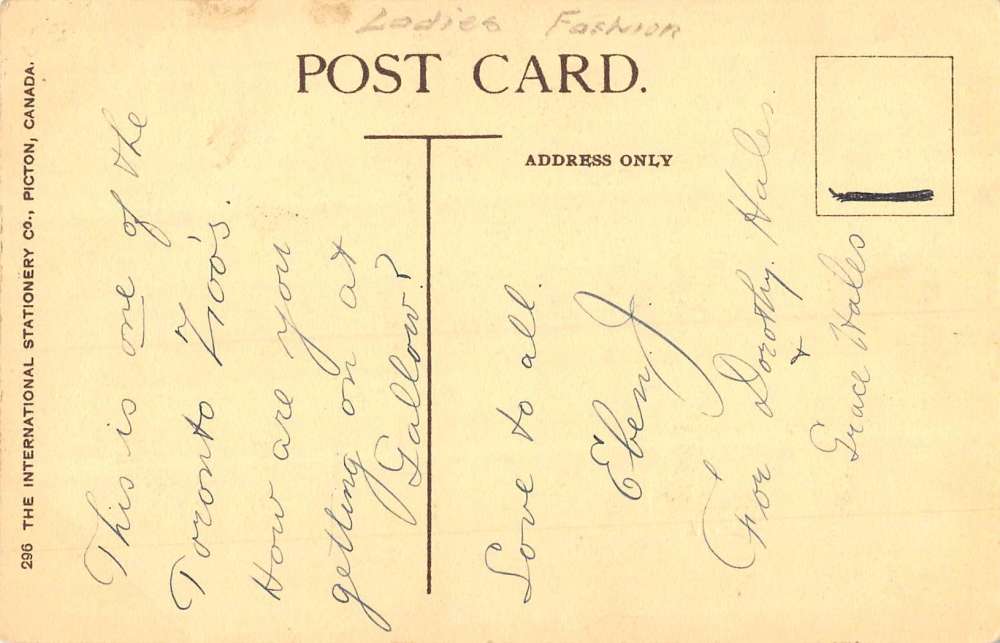 Ladies Fashion
POST CARD.
ADDRESS ONLY
296 THE INTERNATIONAL STATIONERY CO., PICTON, CANADA.
This is one of the
Toronto Zoo's.
How are you
getting on at
Gallow?
Love to all.
Eben J
For Dorothy. Hales.
+
Grace Hales